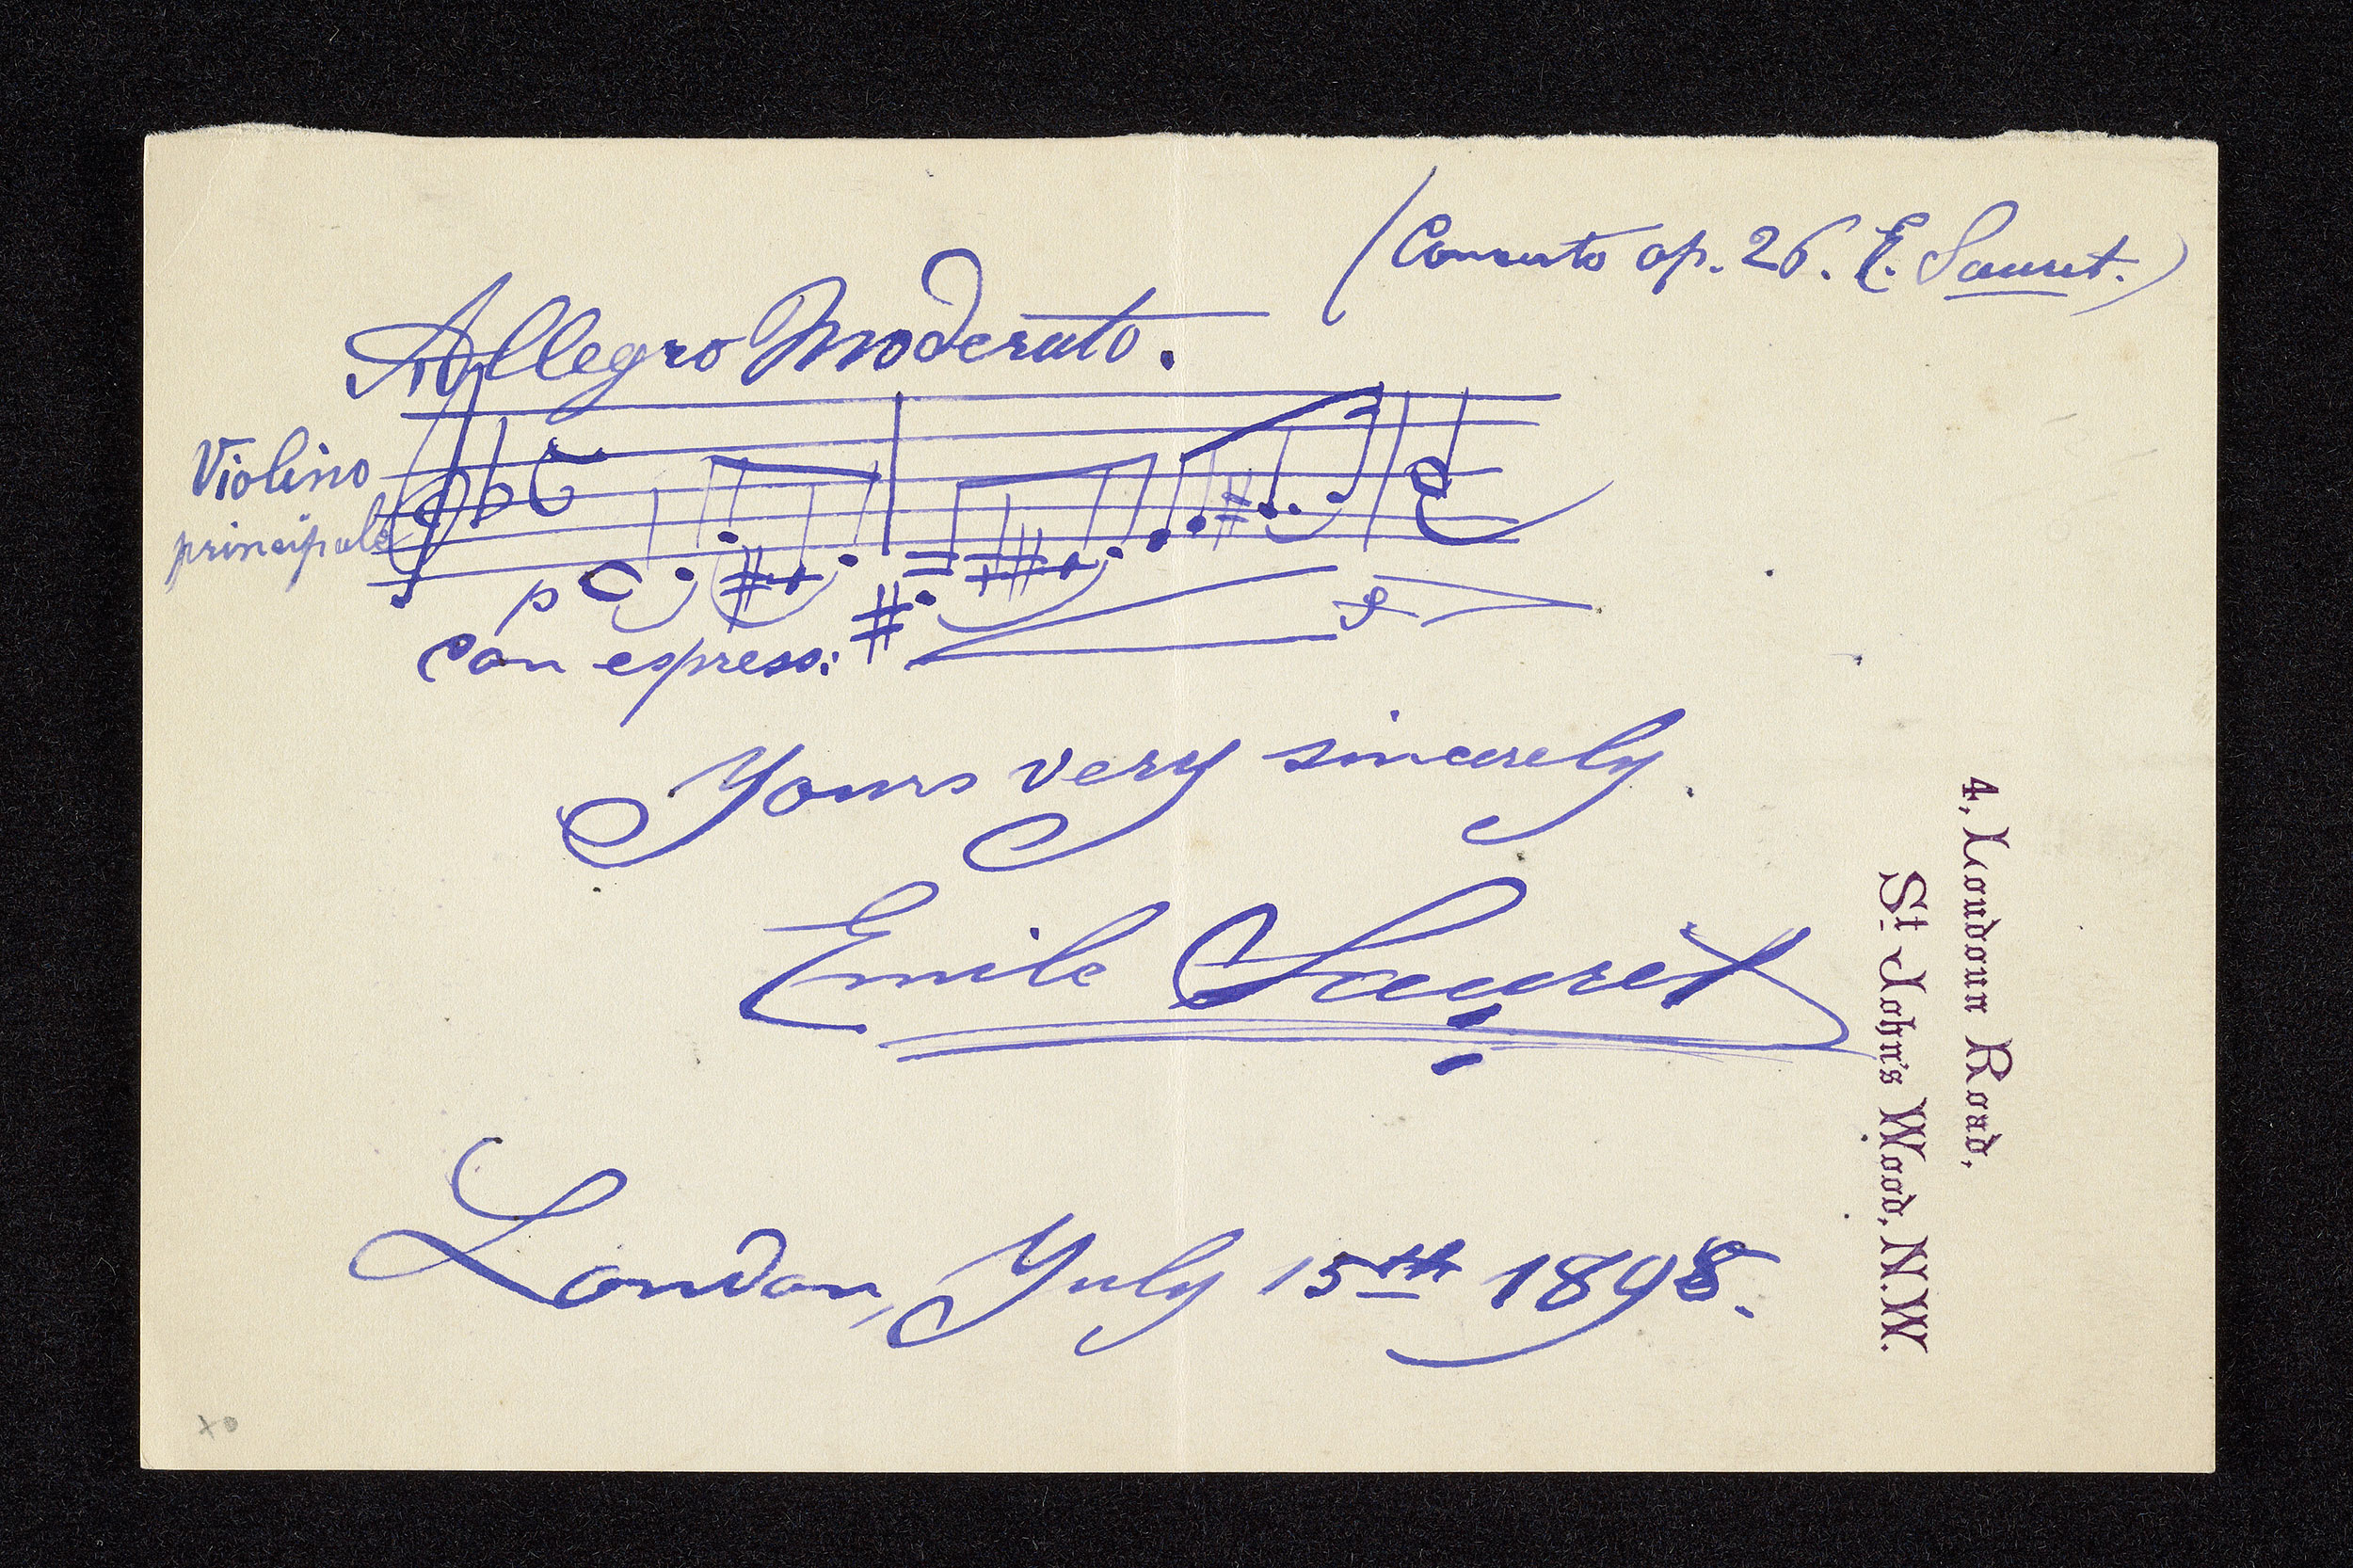 (Concerto op. 26. E. Sauret.)
Allegro Moderato.
Violino
principale
p
con espress:
f
Yours very sincerely
Emile Sauret
London, July 15th 1898.
4, Loudoun Road,
St. John's Wood, N.W.